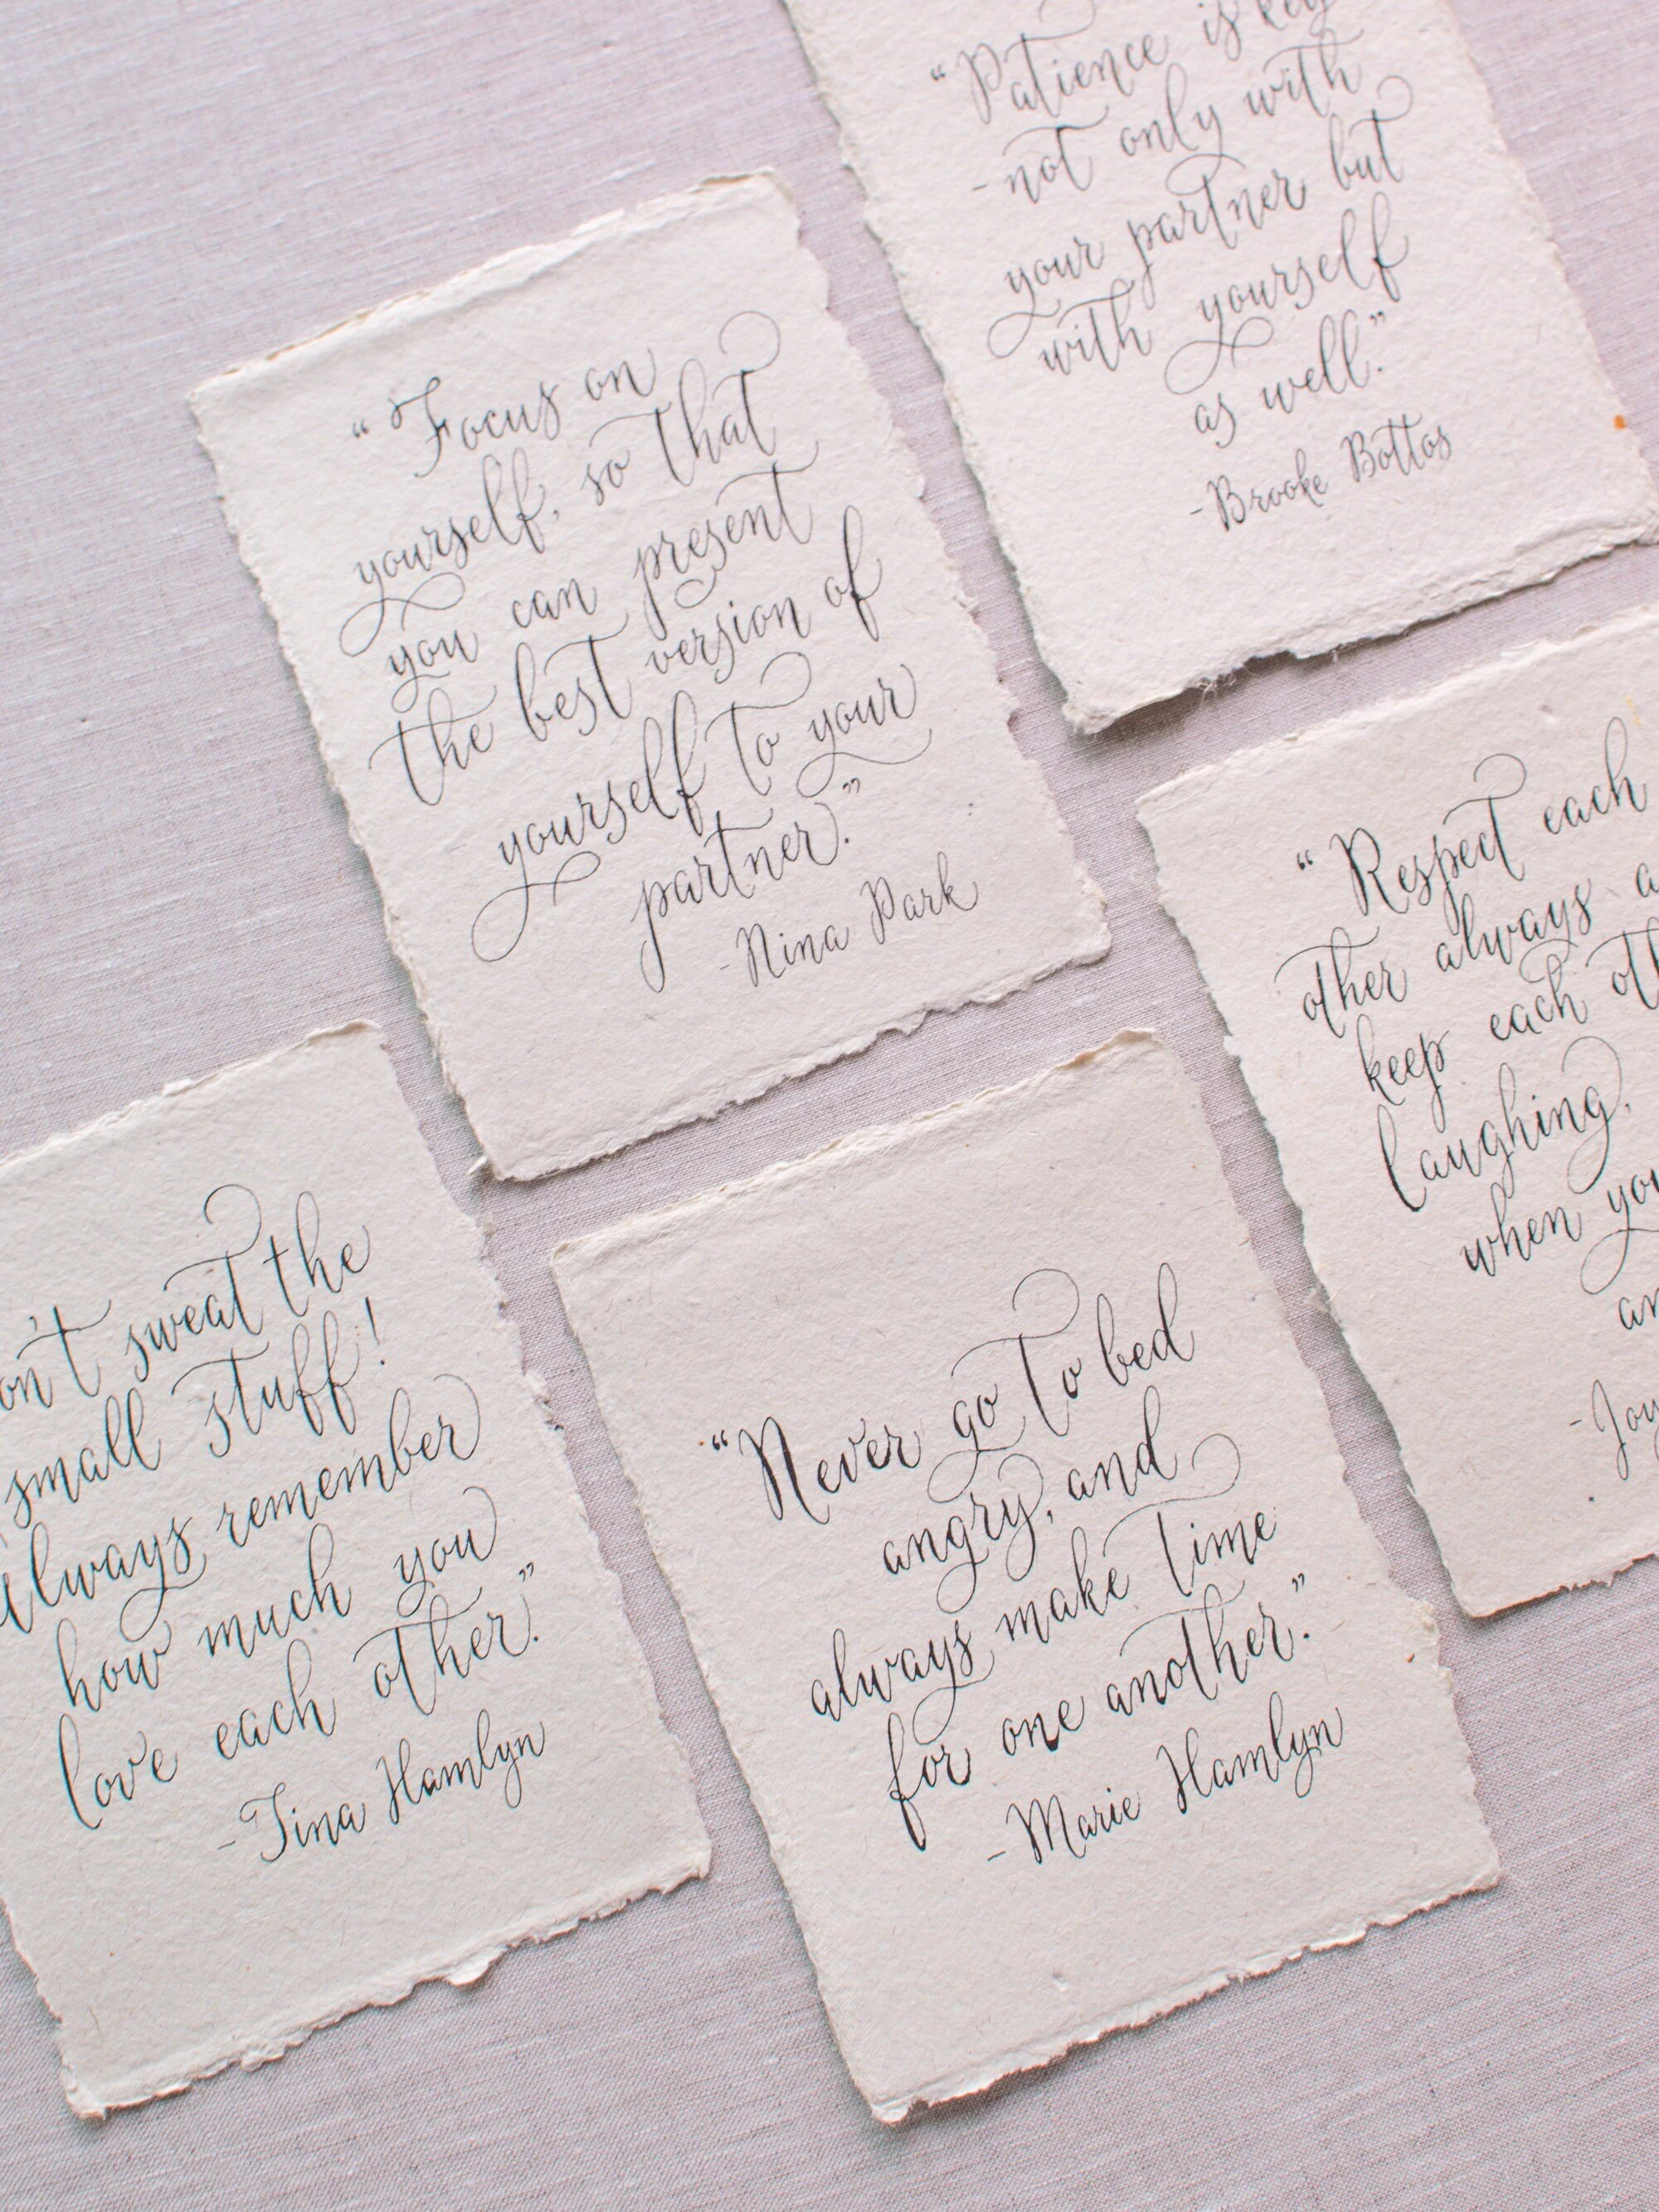 "Patience is key
-not only with
your partner but
with yourself
as well."
-Brooke Bottos
"Focus on
yourself, so that
you can present
the best version of
yourself to your
partner."
-Nina Park
"Respect each
other always
keep each
laughing,
when
sweat the
small stuff!
always remember
how much you
love each other."
-Tina Hamlyn
"Never go to bed
angry, and
always make time
for one another."
-Marie Hamlyn